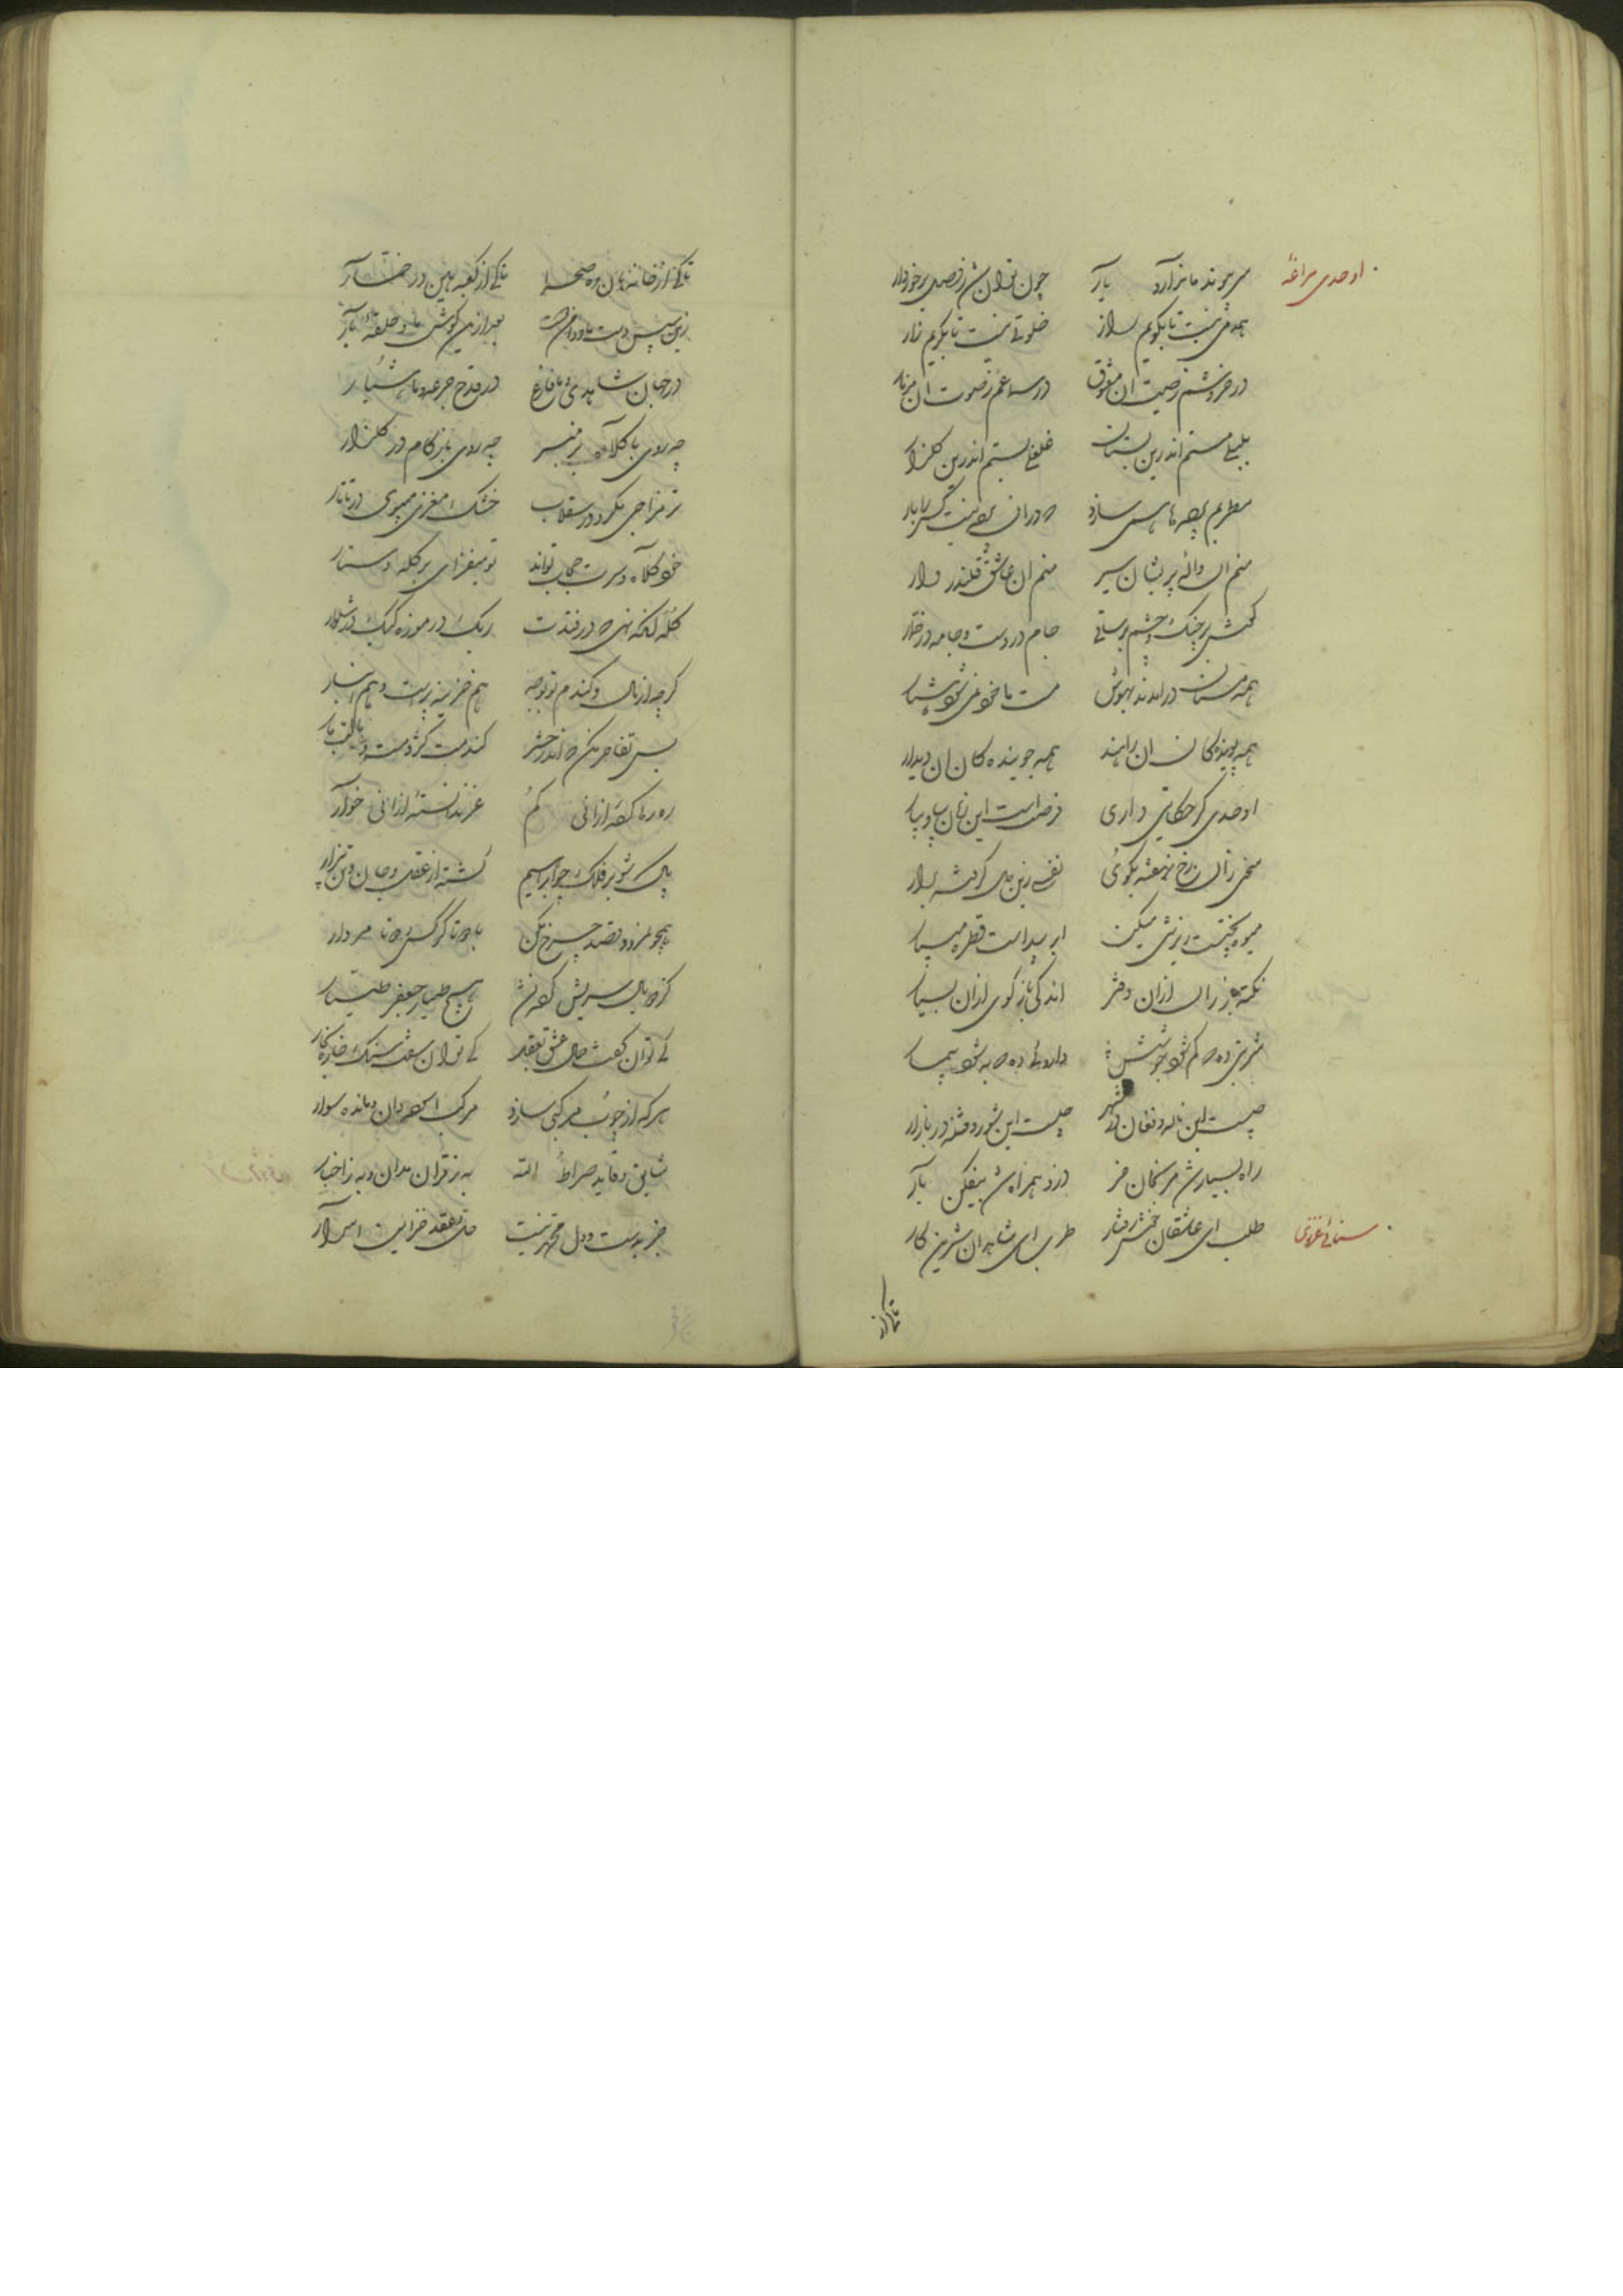 اوحدی مراغهٔ
سر پیوند ما ندارد یار چون توان شد ز وصل برخوردار
همدمی نیست تا بگویم راز خلوتی نیست تا بگریم زار
در خروشم ز صیت آن معشوق در سماعم ز صوت آن مزمار
بلبلی مستم اندرین بستان اندرین گلزار
مطربم پرده‌ها همی سازد که در آن پرده نیست کس را بار
منم آن واله پریشان سیر منم آن عاشق قلندروار
گوش بر چنگ و چشم بر ساقی جام در دست و جامه در خمار
همه مستان درآمدند بهوش مست ما خود نمی‌شود هشیار
همه پویندگان آن راهند همه جویندگان آن دیدار
اوحدی گر حکایتی داری فرصتست این زمان بیا و بیار
سخنی زان رخ نهفته بگوی نفسی زین دل گرفته برار
میوه پختست ریزشی میکن ابر پیداست قطره میبار
نکتهٔ باز ران ازان دفتر اندکی باز گوی ازان بسیار
شربتی ده که کم شود جوشش داروئی ده که به شود بیمار
چیست این ناله و فغان در شهر چیست این شور و فتنه در بازار
راه بسیار شد مرنجان خر دزد همراه شد بیفکن بار
سنائی غزنوی
طلب ای عاشقان خوش رفتار طرب ای شاهدان شیرین کار
تا کی از
تا کی از خانه هان ره صحرا تا کی از کعبه هین در خمار
زین سپس دست ما و دامن دوست بعد ازین گوش ما و حلقهٔ یار
در جهان شاهدی و ما فارغ در قدح جرعه و ما هشیار
چه روی با کلاه بر منبر چه روی با زکام در گلزار
تر مزاجی مگرد در سقلاب خشک مغزی مپوی در تاتار
خود کلاه و سرت حجاب تواند تو میفزای بر کله دستار
کله آنگه نهی که در فتدت ریگ در موزه کیک در شلوار
گرچه از مال و گندم تو بوجه هم خزینه پرست و هم انبار
بس تفاخر مکن که اندر حشر گندمت کژدمست و مالت مار
ره رها کردهٔ ازانی گم عز ندانستهٔ ازانی خوار
بال شو بر فلک چو ابراهیم گشته از عقل و جان و تن بیزار
همچو نمرود قصد چرخ مکن با دو تا کرگس و دو تا مردار
کز دو بال سریش کرده نشد هیچ طیار جعفر طیار
کی توان گفت حال عشق بعقل کی توان سفت سنگ خاره بخار
هرکه از چوب مرکبی سازد مرکب آسوده دان و مانده سوار
به ز قرآن مدان و به ز اخبار
جز بدست و دل محمد نیست حل و عقد خزاین اسرار